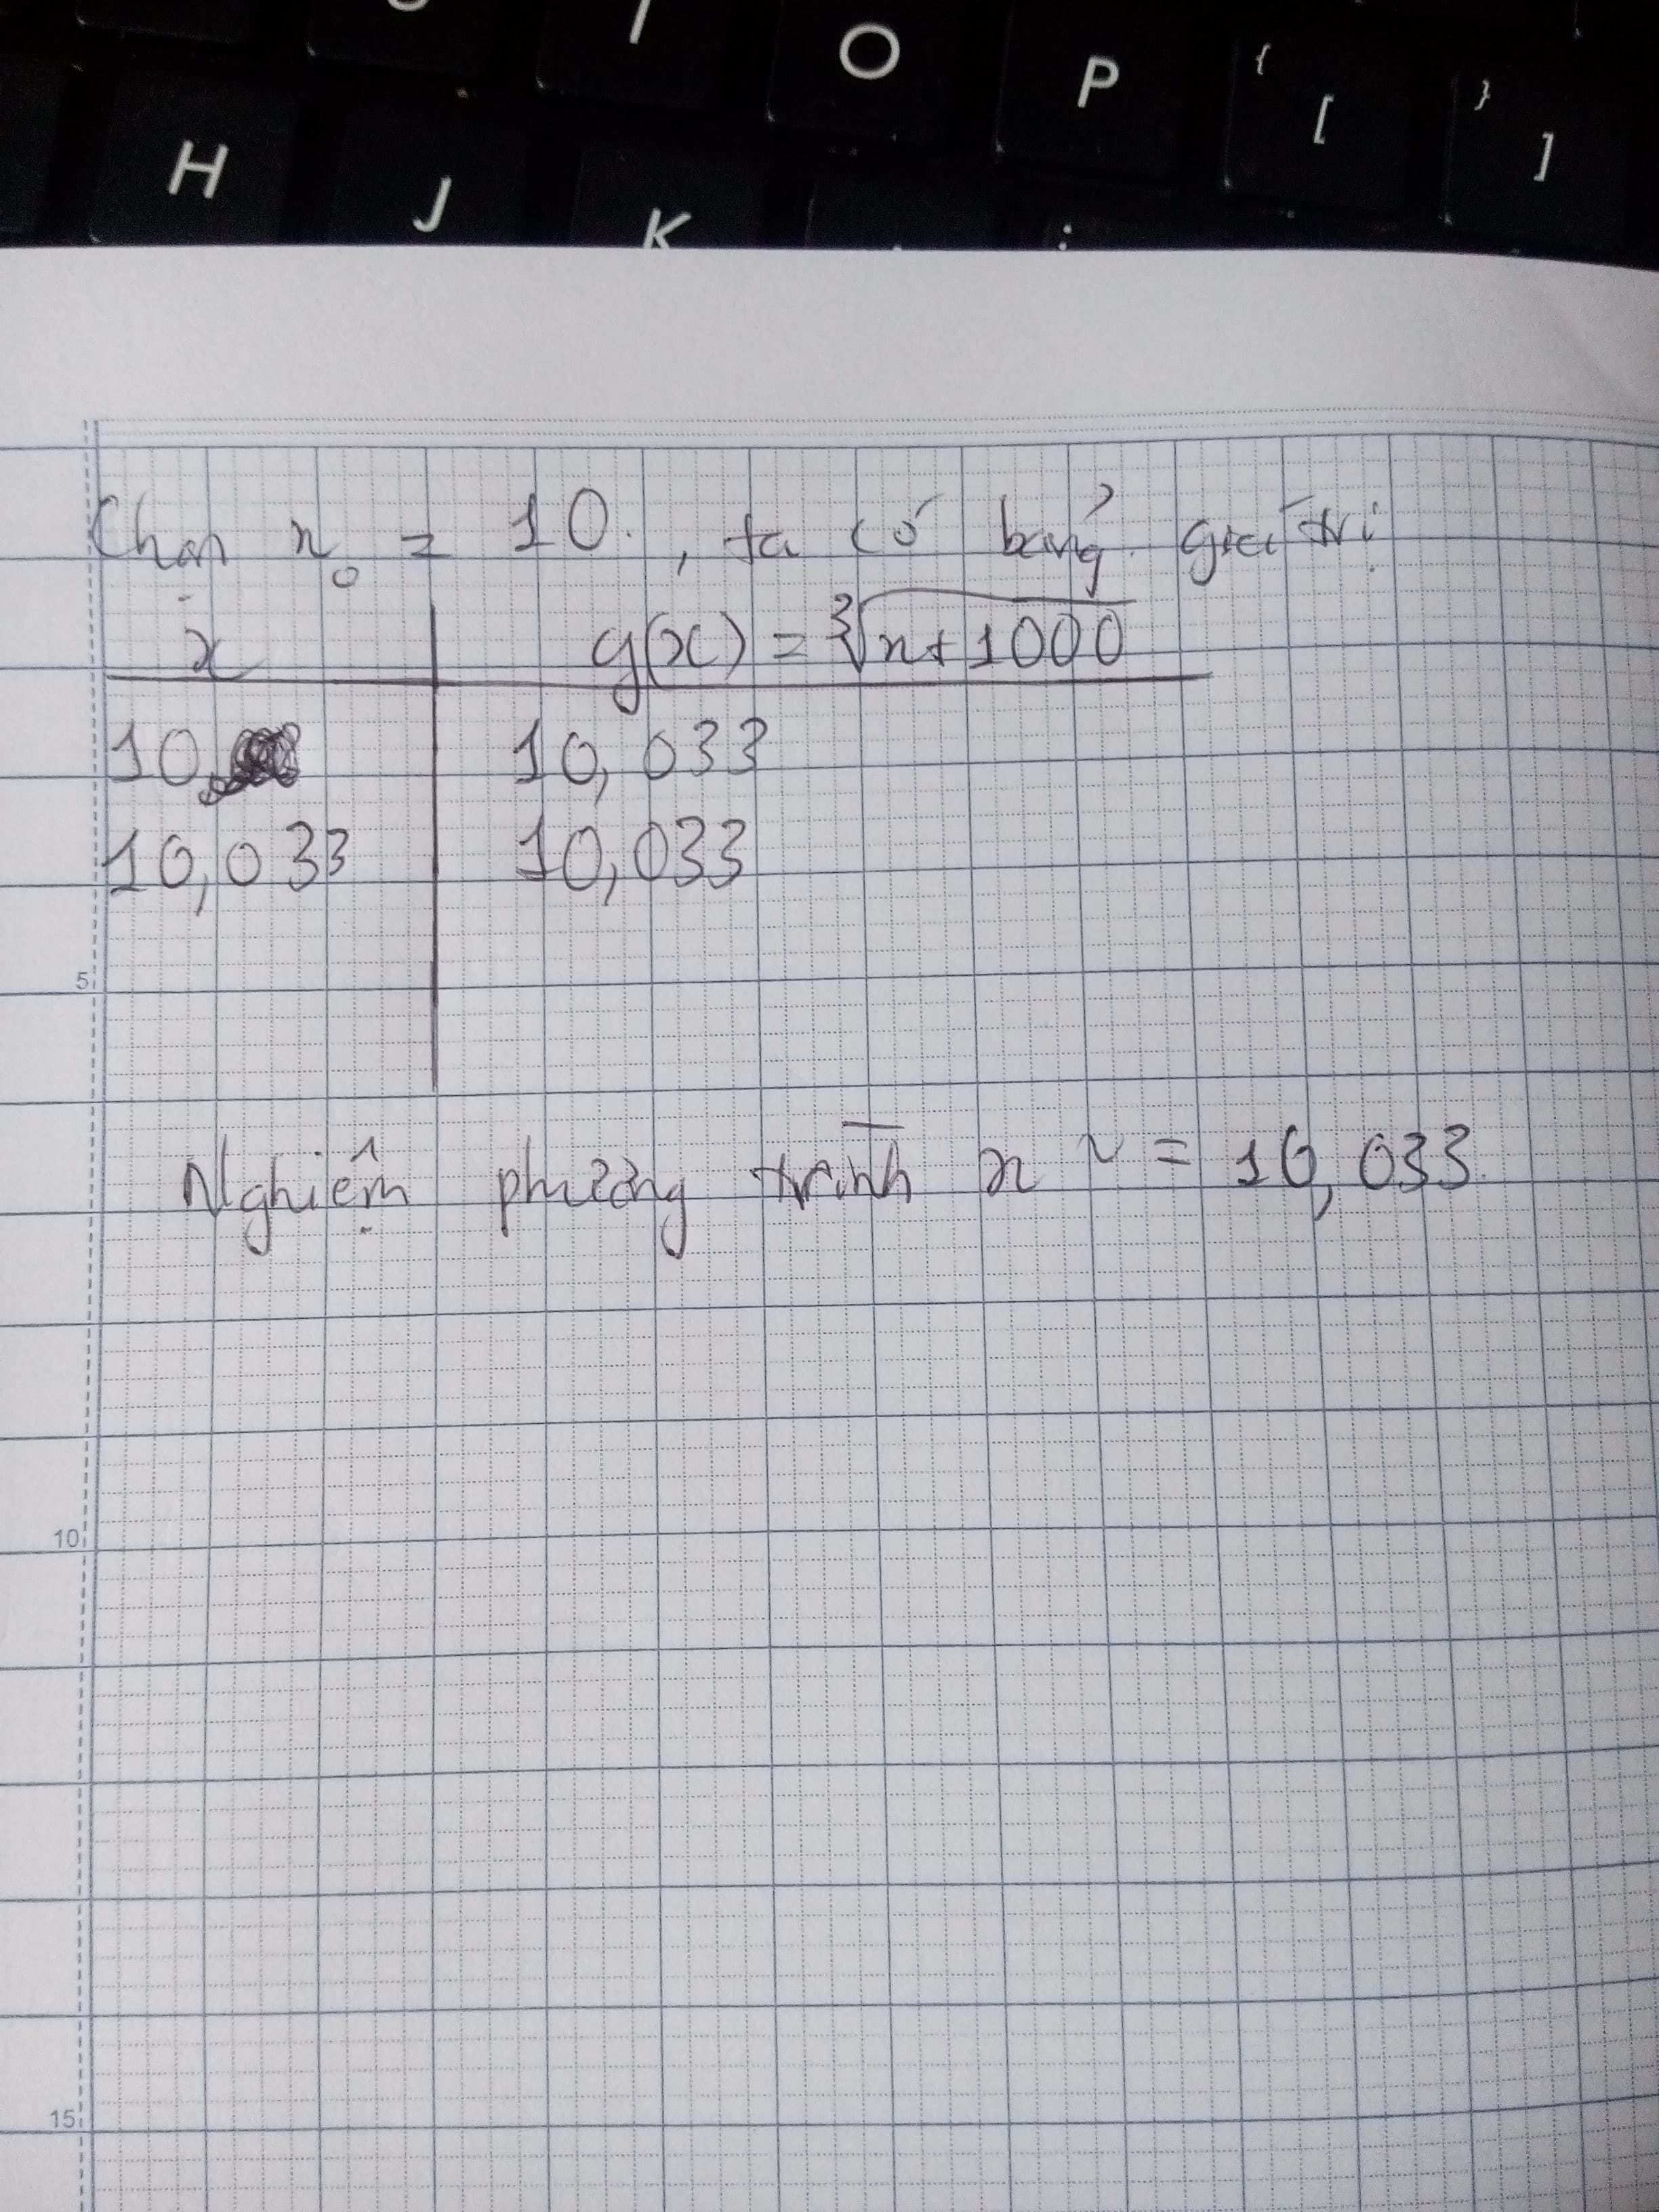 O P { [ } ]
H J K ;
Chọn x₀ = 10, ta có bảng giá trị
x g(x) = ∛x+1000
10 10,033
10,033 10,033
5
Nghiệm phương trình x ~ = 10,033.
10
15